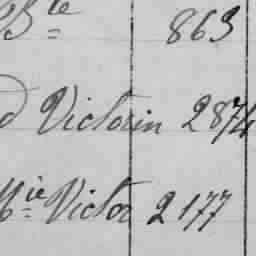 Bte 863
d Victorin 2874
Mie Victor 2177